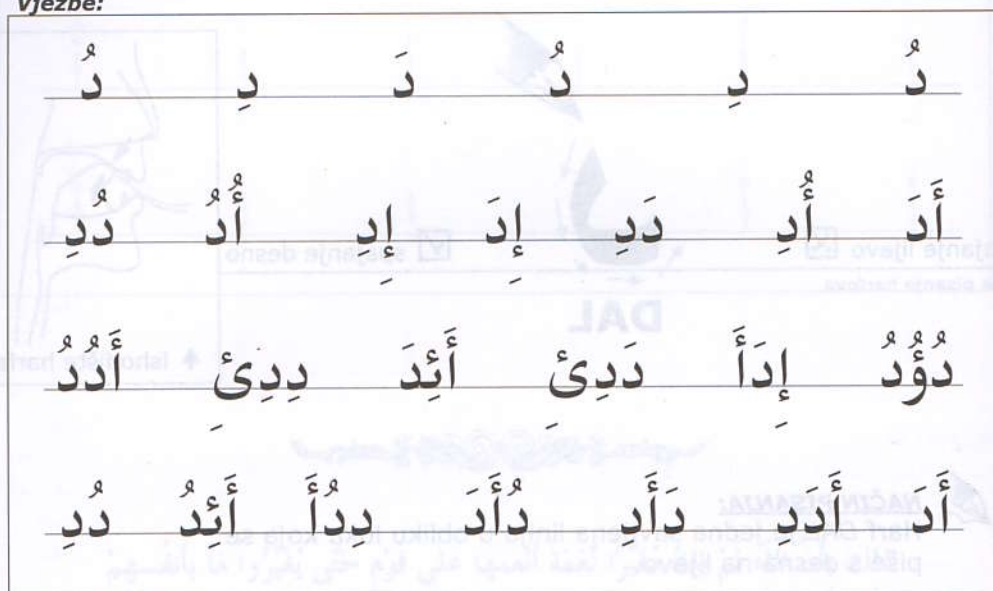 Vježbe:
دُ دِ دُ دَ دِ دُ
أَدَ أُدِ دَدِ إِدَ إِدِ أُدُ دُدِ
دُؤُدُ إِدَأَ دَدِئِ أَئِدَ دِدِئِ أَدُدُ
أَدَ أَدَدِ دَأَدِ دُأَدَ دِدُأَ أَئِدُ دُدِ